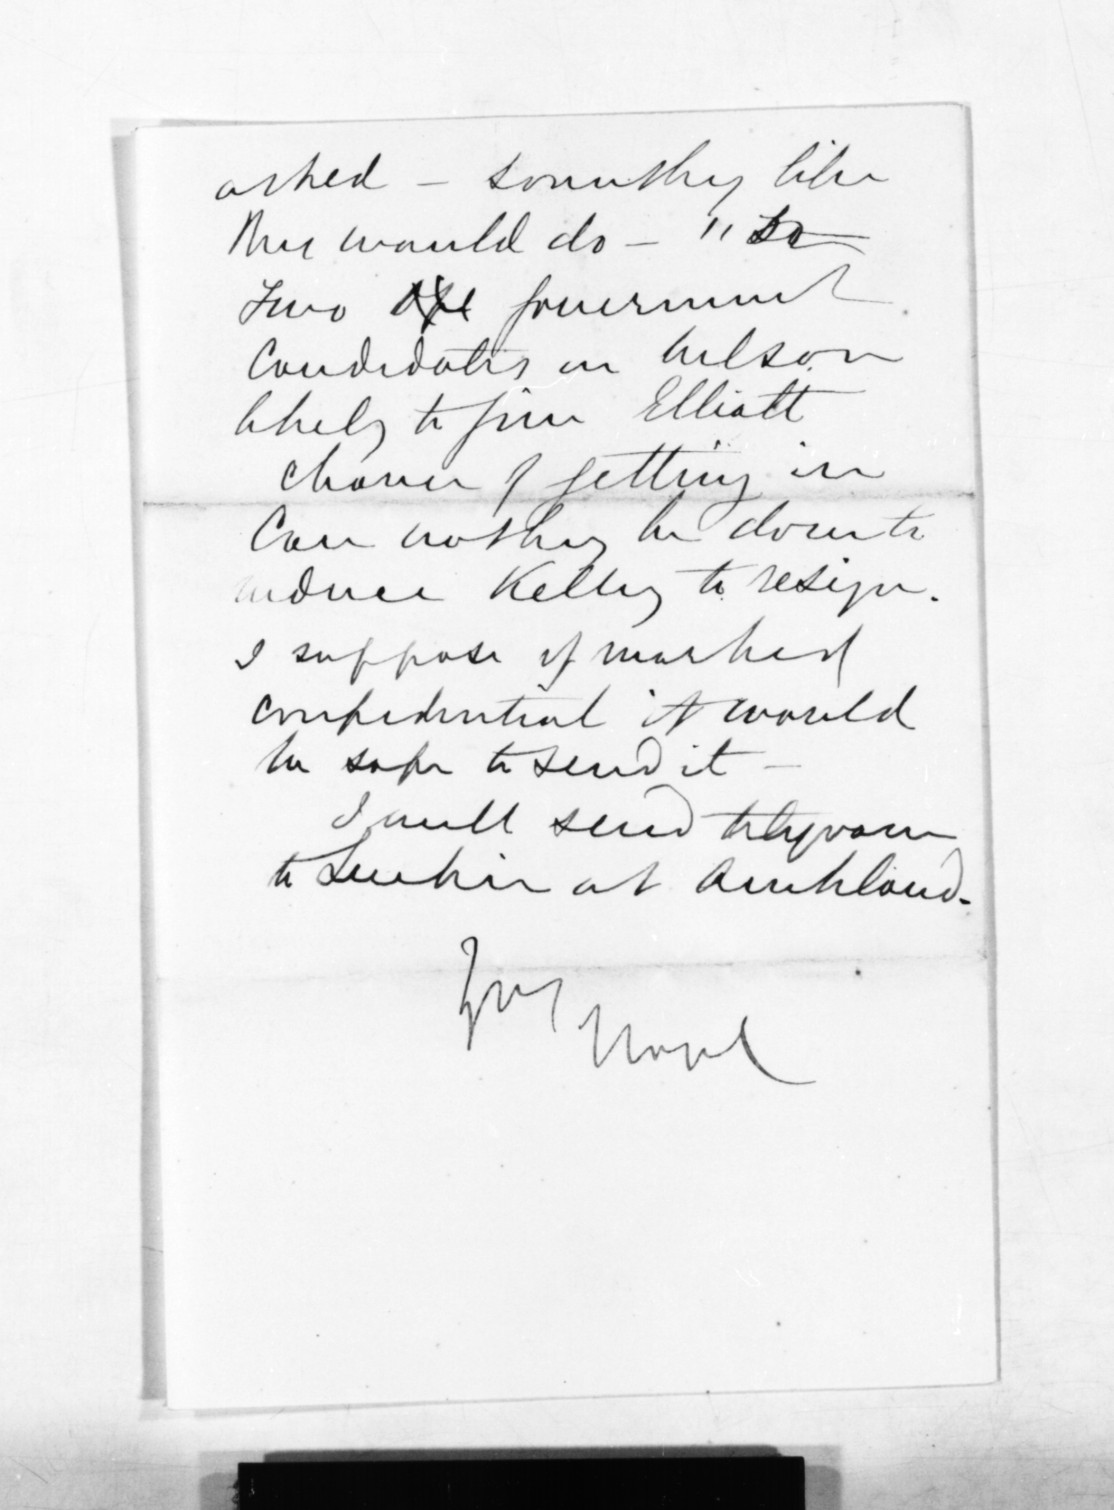 asked – something like
this would do – " So
Two Government
Candidates in Nelson
likely to give Elliott
chance of getting in
Can nothing be done to
induce Kelling to resign.
I suppose if marked
confidential it would
be safe to send it –
I will send telegram
to at Auckland.
Yrs